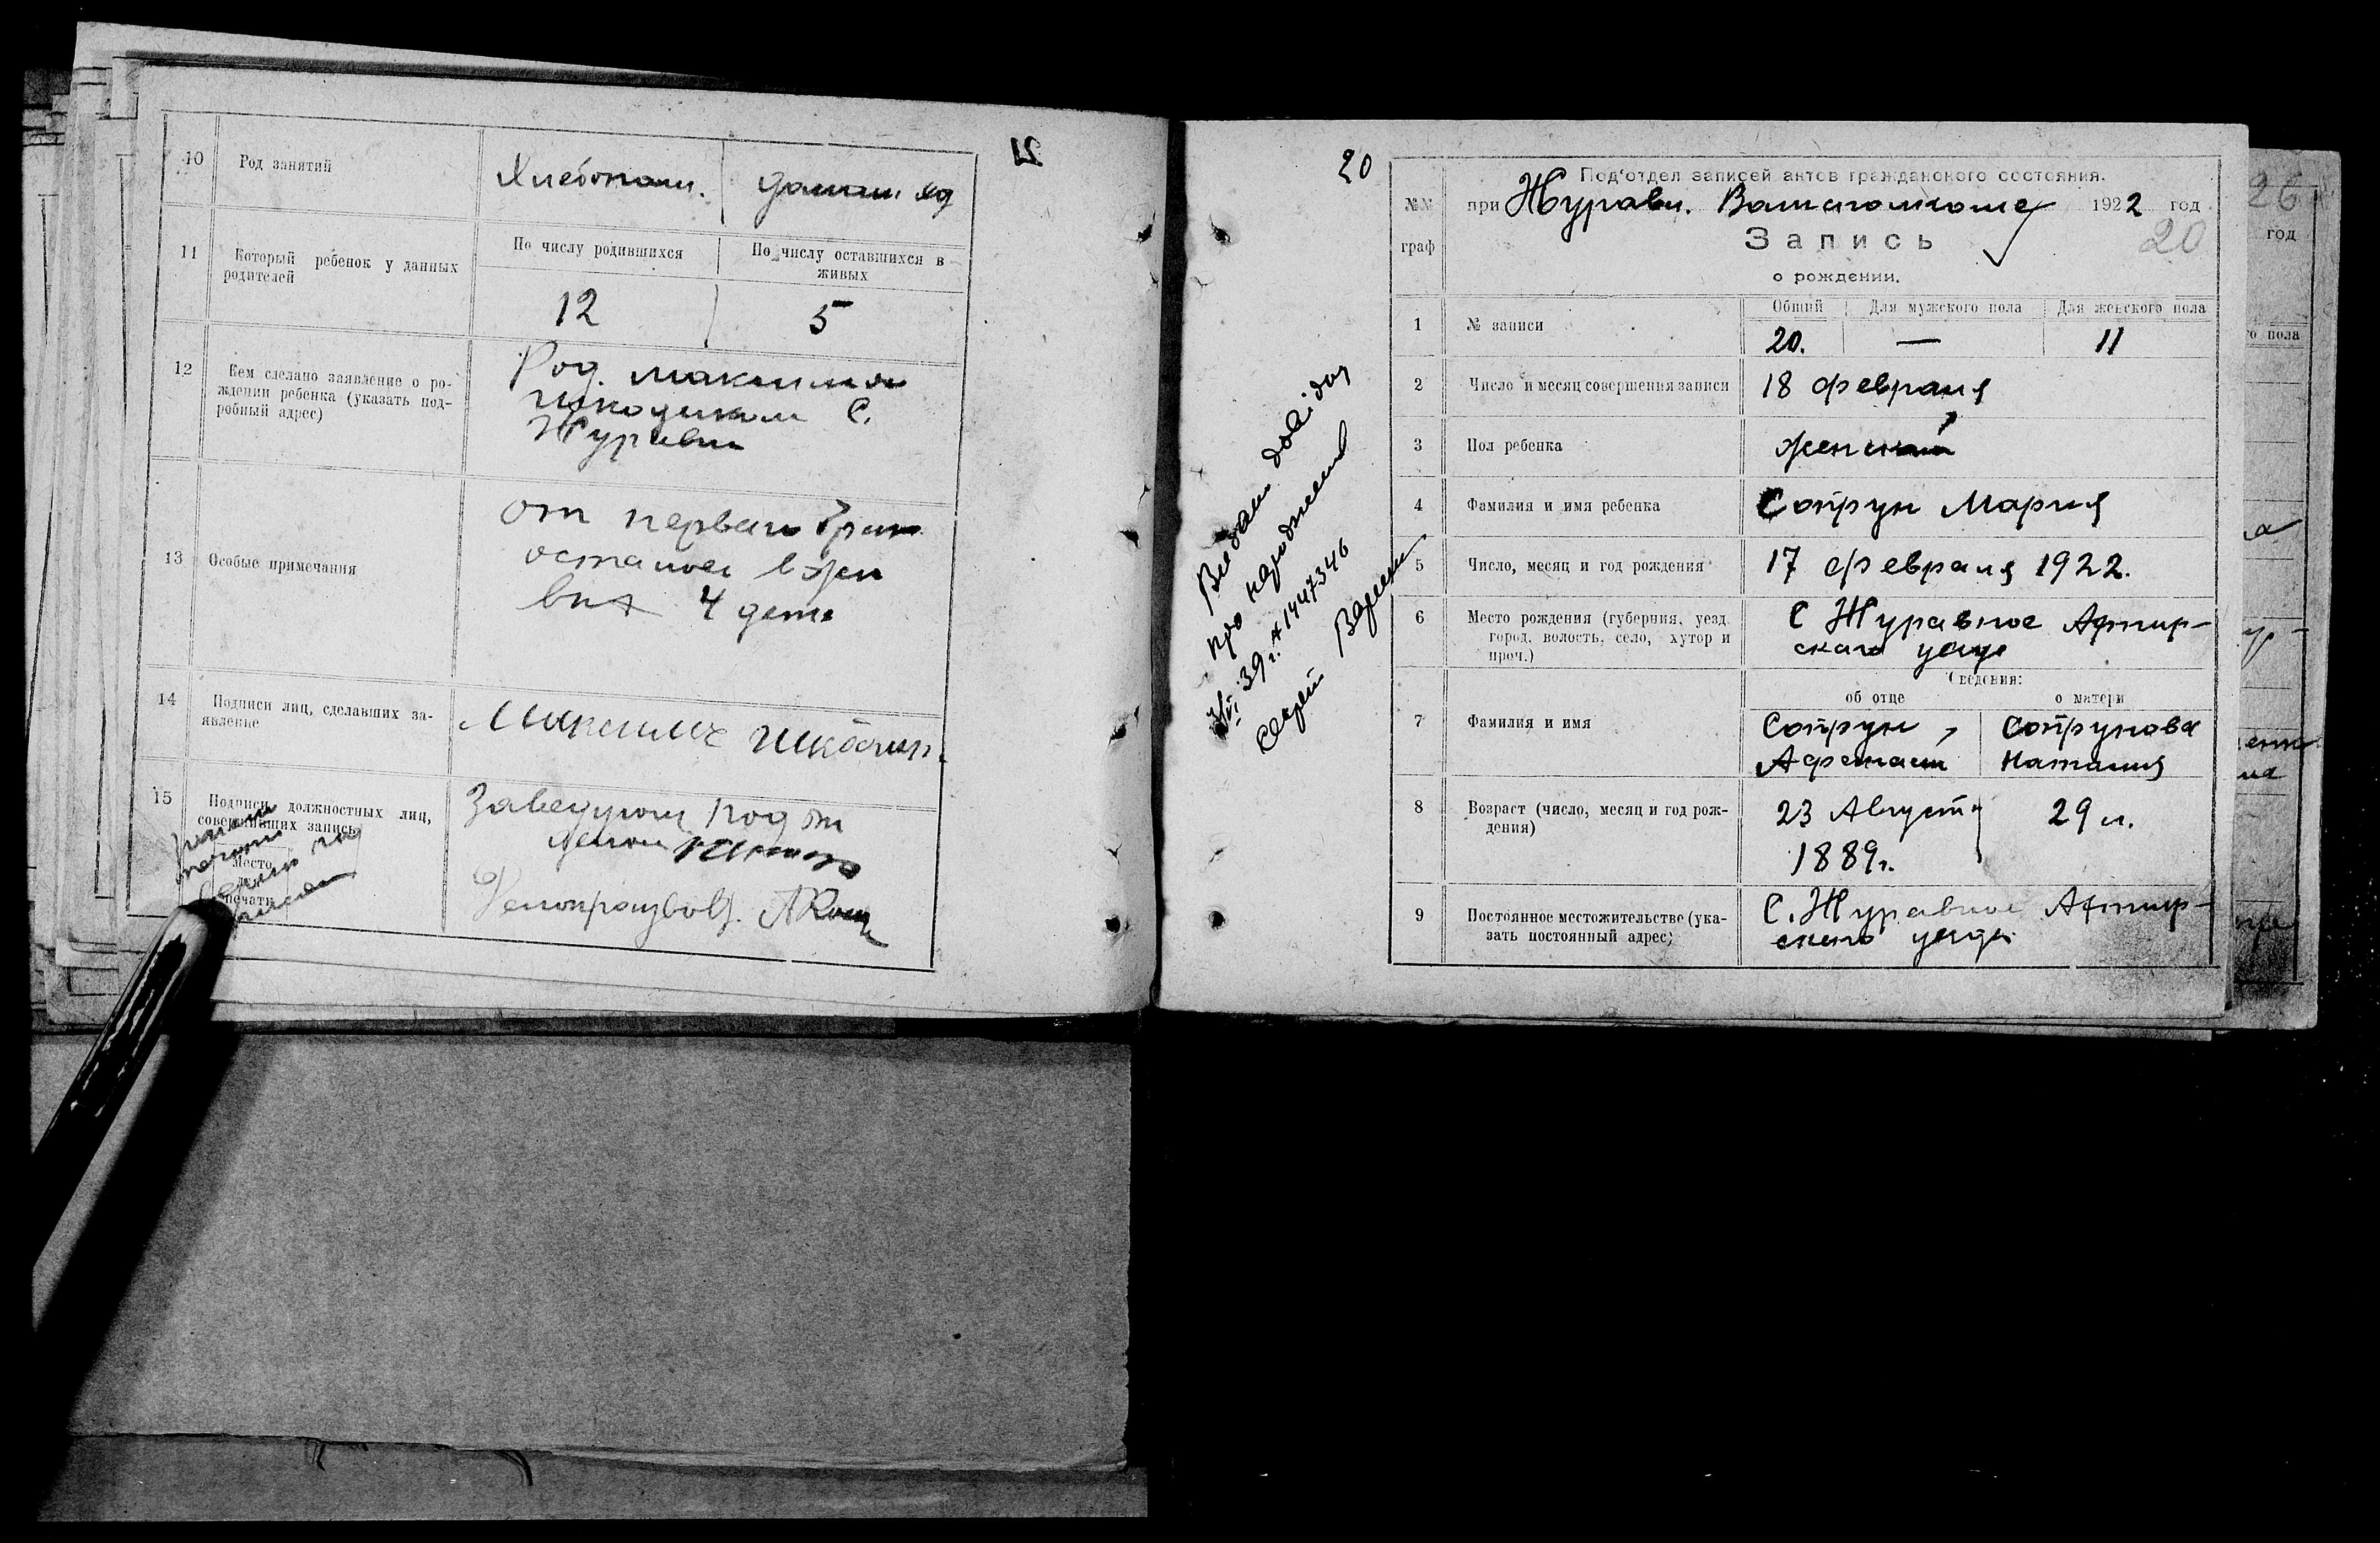 10 Род занятий
Хлебопаш. домаш хоз
11 Который ребенок у данных
родителей
По числу родившихся По числу оставшихся в
живых
12 5
12 Кем сделано заявление о ро-
ждении ребенка (указать под-
робный адрес)
Род.
С.
13 Особые примечания
от первого
остались
4 дете
14 Подписи лиц, сделавших за-
явление
15 Подписи должностных лиц,
совершивших запись
Место
для
печати
Заведующ Под от
делом
Делопроизвод.
21
20
Видано довідку
про народження
VI 39 г. 1447346
Под'отдел записей актов гражданского состояния.
№№
граф
при Журавл. 1922 год
Запись
20
о рождении.
1 № записи
Общий Для мужского пола Для женского пола
20. — 11
2 Число и месяц совершения записи 18 февраля
3 Пол ребенка женский
4 Фамилия и имя ребенка Сопрун Мария
5 Число, месяц и год рождения 17 февраля 1922.
6 Место рождения (губерния, уезд.
город, волость, село, хутор и
проч.)
С Журавное Ахтыр-
ского уезда
Сведения:
об отце о матери
7 Фамилия и имя
Сопрун Сопрунова
Афанасий Наталия
8 Возраст (число, месяц и год рож-
дения)
23 Августа 29 л.
1889г.
9 Постоянное местожительство (ука-
зать постоянный адрес)
С. Журавное Ахтыр-
ского уезда
26
год
го пола